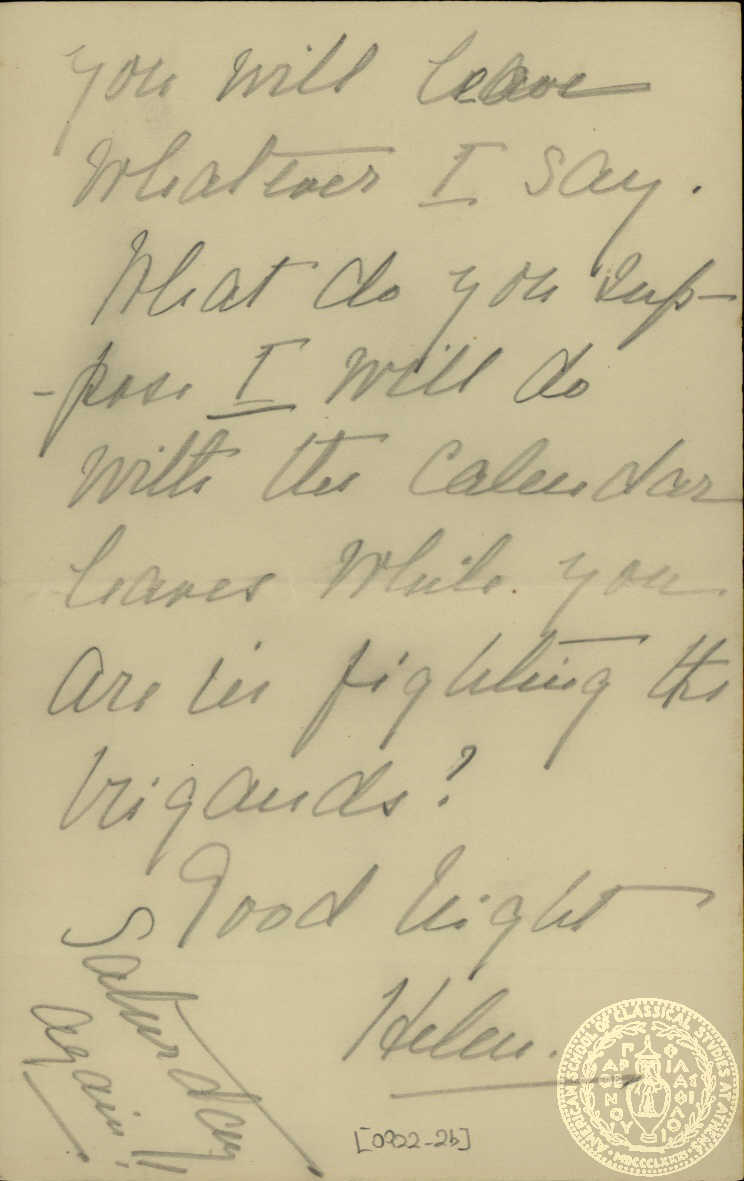 you will leave
whatever I say.
What do you sup-
-pose I will do
with the calendar
leaves while you
are in fighting the
brigands?
Good night
Helen.
Saturday
again!!
[0922-2b]
AMERICAN SCHOOL OF CLASSICAL STUDIES AT ATHENS
MDCCCLXXXI